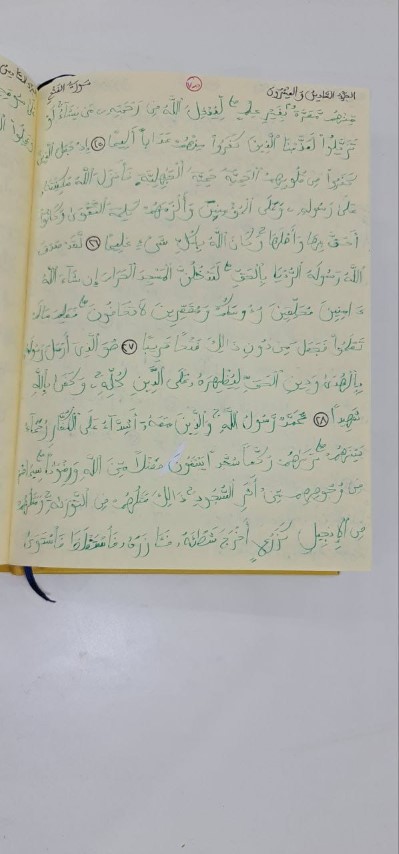 الجزء السادس والعشرون
سورة الفتح
منهم معرة بغير علم ليدخل الله في رحمته من يشاء لو
تزيلوا لعذبنا الذين كفروا منهم عذابا أليما ٢٥ إذ جعل الذين
كفروا في قلوبهم الحمية حمية الجهلية فأنزل الله سكينته
على رسوله وعلى المؤمنين وألزمهم كلمة التقوى وكانوا
أحق بها وأهلها وكان الله بكل شيء عليما ٢٦ لقد صدق
الله رسوله الرءيا بالحق لتدخلن المسجد الحرام إن شاء الله
ءامنين محلقين رءوسكم ومقصرين لا تخافون فعلم ما لم
تعلموا فجعل من دون ذالك فتحا قريبا ٢٧ هو الذي أرسل رسوله
بالهدى ودين الحق ليظهره على الدين كله وكفى بالله
شهيدا ٢٨ محمد رسول الله والذين معه أشداء على الكفار رحماء
بينهم تريهم ركعا سجدا يبتغون فضلا من الله ورضونا سيماهم
في وجوههم من أثر السجود ذالك مثلهم في التورية ومثلهم
في الإنجيل كزرع أخرج شطئه فئازره فاستغلظ فاستوى